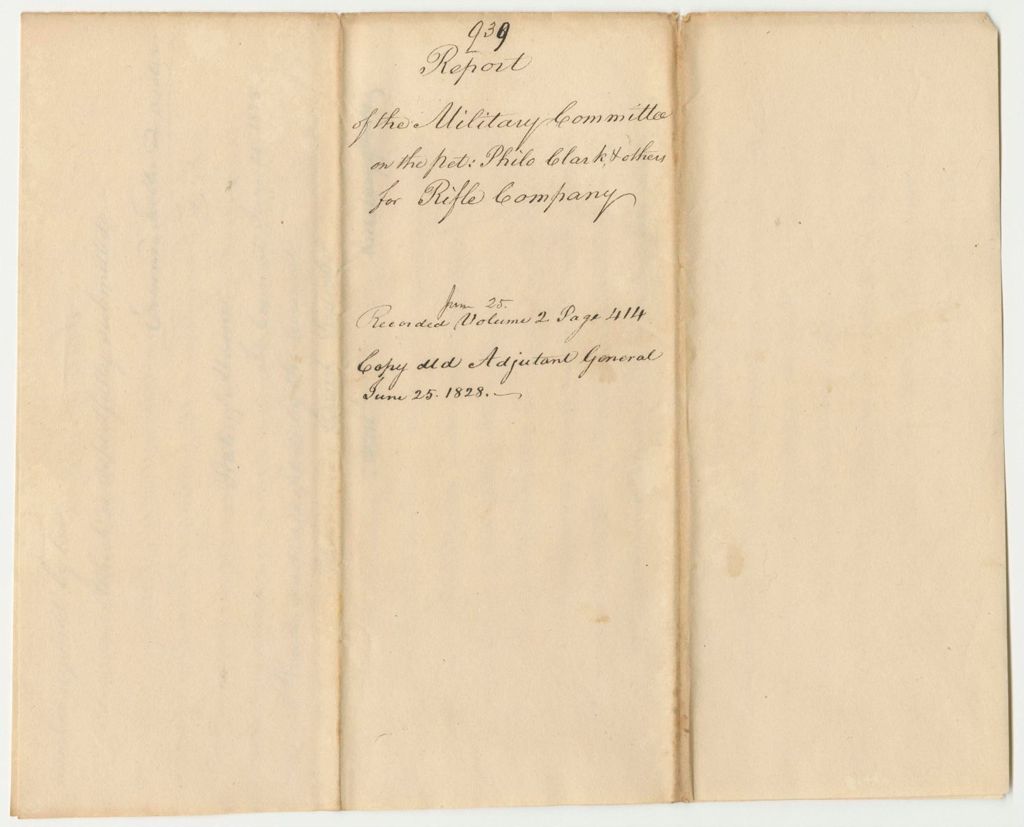 939
Report
of the Military Committee
on the pet: Philo Clark & others
for Rifle Company
June 25.
Recorded Volume 2 Page 414
Copy dld Adjutant General
June 25. 1828.